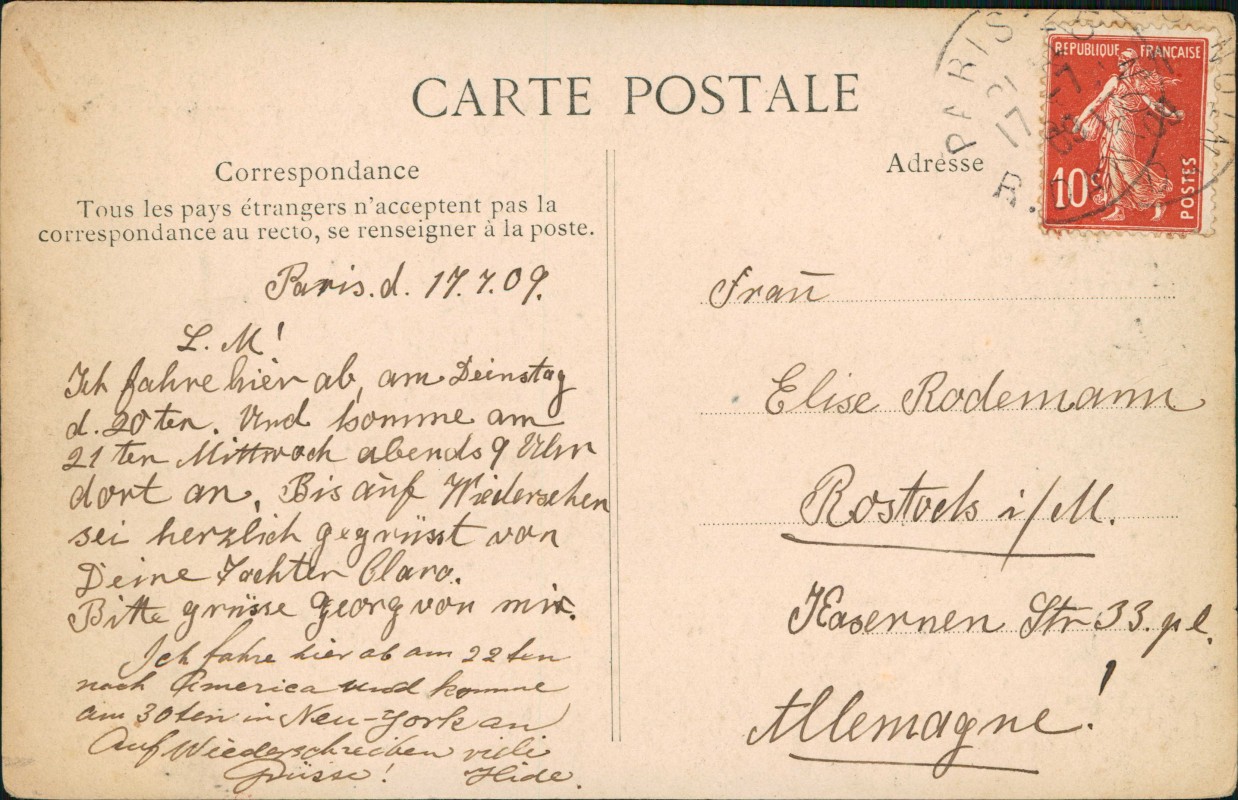 CARTE POSTALE
Correspondance
Tous les pays étrangers n'acceptent pas la
correspondance au recto, se renseigner à la poste.
Paris. d. 17.7.09.
L. M!
Ich fahre hier ab, am Deinstag
d. 20 ten. Und komme am
21 ten Mittwoch abends 9 Uhr
dort an. Bis auf Wiedersehen
sei herzlich gegrüsst von
Deine Tochter Clara.
Bitte grüsse Georg von mir.
Ich fahre hier ab am 22 ten
nach America und komme
am 30 ten in Neu-York an
Auf Wiederschreiben
Grüsse! Hide.
Adresse
PARIS
17
REPUBLIQUE FRANÇAISE
10c
POSTES
Frau
Elise Rodemann
Rostock i/M.
Kasernen Str 33. pl.
Allemagne!